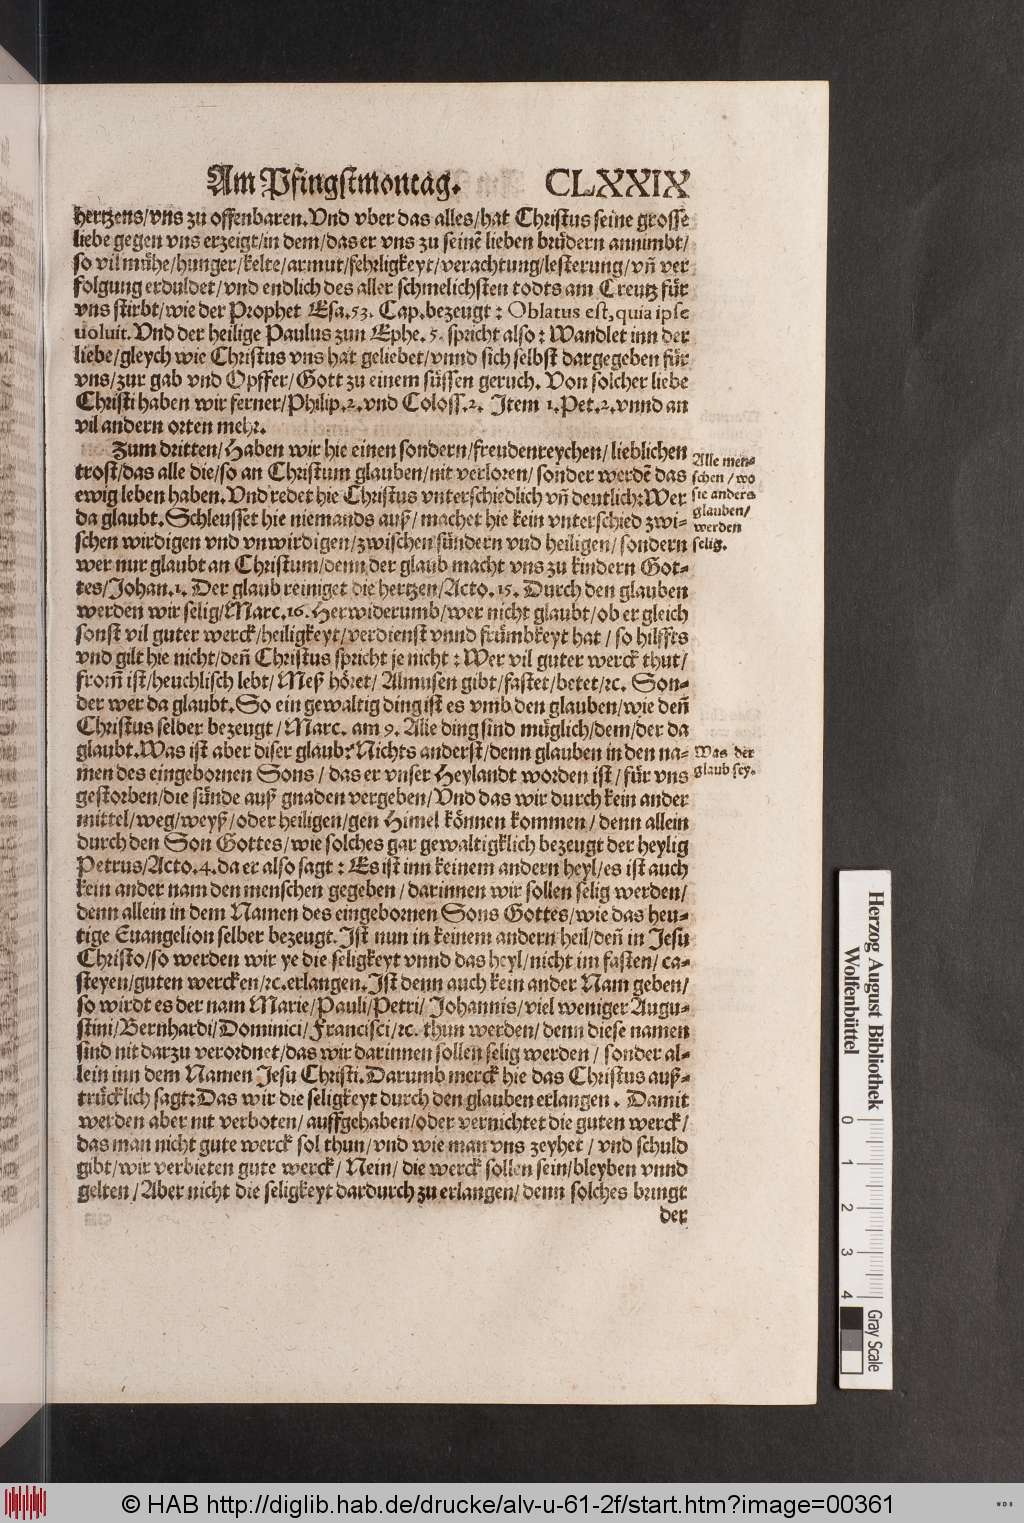 Am Pfingstmontag. CLXXIX
hertzens/vns zu offenbaren. Vnd vber das alles/hat Christus seine grosse
liebe gegen vns erzeigt/in dem/das er vns zu seinē lieben brüdern annimbt/
so vil mühe/hunger/kelte/armut/fehrligkeyt/verachtung/lesterung/vñ ver
folgung erduldet/vnd endlich des aller schmelichsten todts am Creutz für
vns stirbt/wie der Prophet Esa.53. Cap.bezeugt: Oblatus est, quia ipse
uoluit. Vnd der heilige Paulus zun Ephe. 5. spricht also: Wandlet inn der
liebe/gleych wie Christus vns hat geliebet/vnnd sich selbst dargegeben für
vns/zur gab vnd Opffer/Gott zu einem süssen geruch. Von solcher liebe
Christi haben wir ferner/Philip.2. vnd Coloss.2. Item 1.Pet.2. vnnd an
vil andern orten mehr.
Zum dritten/Haben wir hie einen sondern/freudenreychen/lieblichen
trost/das alle die/so an Christum glauben/nit verloren/sonder werdē das
ewig leben haben. Vnd redet hie Christus vnterschiedlich vñ deutlich: Wer
da glaubt. Schleusset hie niemands auß/machet hie kein vnterschied zwi-
schen wirdigen vnd vnwirdigen/zwischen sündern vnd heiligen/sondern
wer nur glaubt an Christum/denn der glaub macht vns zu kindern Got-
tes/Johan.1. Der glaub reiniget die hertzen/Acto.15. Durch den glauben
werden wir selig/Marc.16. Herwiderumb/wer nicht glaubt/ob er gleich
sonst vil guter werck/heiligkeyt/verdienst vnnd frümbkeyt hat/so hilffts
vnd gilt hie nicht/deñ Christus spricht je nicht: Wer vil guter werck thut/
from̃ ist/heuchlisch lebt/Meß höret/Almusen gibt/fastet/betet/ꝛc. Son-
der wer da glaubt. So ein gewaltig ding ist es vmb den glauben/wie deñ
Christus selber bezeugt/Marc. am 9. Alle ding sind müglich/dem/der da
glaubt. Was ist aber diser glaub? Nichts anderst/denn glauben in den na-
men des eingebornen Sons/das er vnser Heylandt worden ist/für vns
gestorben/die sünde auß gnaden vergeben/Vnd das wir durch kein ander
mittel/weg/weyß/oder heiligen/gen Himel können kommen/denn allein
durch den Son Gottes/wie solches gar gewaltigklich bezeugt der heylig
Petrus/Acto.4. da er also sagt: Es ist inn keinem andern heyl/es ist auch
kein ander nam den menschen gegeben/darinnen wir sollen selig werden/
denn allein in dem Namen des eingebornen Sons Gottes/wie das heu-
tige Euangelion selber bezeugt. Ist nun in keinem andern heil/deñ in Jesu
Christo/so werden wir ye die seligkeyt vnnd das heyl/nicht im fasten/ca-
steyen/guten wercken/ꝛc. erlangen. Ist denn auch kein ander Nam geben/
so wirdt es der nam Marie/Pauli/Petri/Johannis/viel weniger Augu-
stini/Bernhardi/Dominici/Francisci/ꝛc. thun werden/denn diese namen
sind nit darzu verordnet/das wir darinnen sollen selig werden/sonder al-
lein inn dem Namen Jesu Christi. Darumb merck hie das Christus auß-
trücklich sagt: Das wir die seligkeyt durch den glauben erlangen. Damit
werden aber nit verboten/auffgehaben/oder vernichtet die guten werck/
das man nicht gute werck sol thun/vnd wie man vns zeyhet/vnd schuld
gibt/wir verbieten gute werck/Nein/die werck sollen sein/bleyben vnnd
gelten/Aber nicht die seligkeyt dardurch zu erlangen/denn solches bringt
der
Alle men-
schen/wo
sie anders
glauben/
werden
selig.
Was der
glaub sey.
Herzog August Bibliothek
Wolfenbüttel
0 1 2 3 4
Gray Scale
© HAB http://diglib.hab.de/drucke/alv-u-61-2f/start.htm?image=00361
WDB